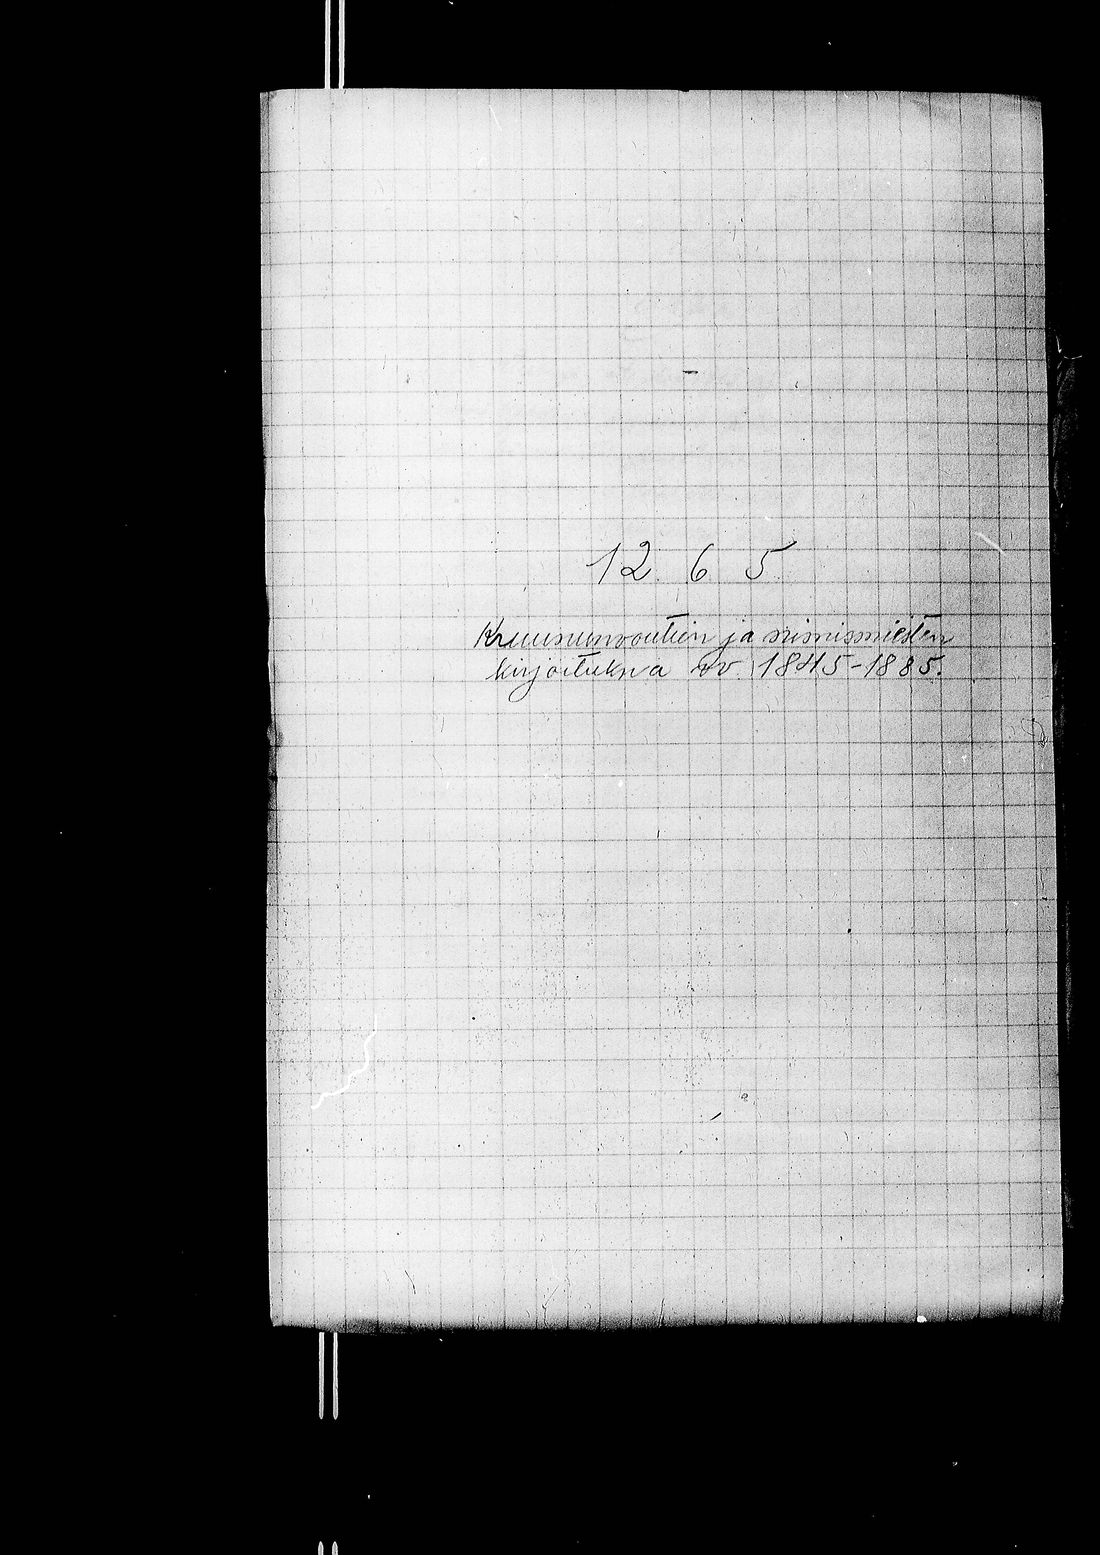 12 6 5
Kruununvoutien ja nimismiesten
kirjoituksia vv. 1845-1885.